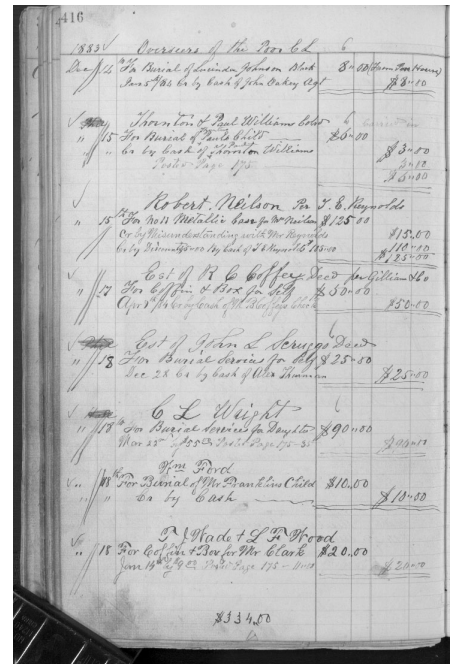 416
1883 Overseers of the Poor
Dec 14 For Burial of Lucinda Johnson 8.00 (From Poor House)
Cr by Cash of John Oakey Agt $8.00
Thornton & Paul Williams Cold
" 15 For Burial of Pauls Child $6.00
" " Cr by Cash of Thornton Williams $3.00
Posted Page 175
$6.00
Robert Neilson Per T. E. Reynolds
" 15 For No 11 Metallic Case for Mr Neilson $125.00
Cr by Misunderstanding with Mr Reynolds $15.00
$110.00
$125.00
Est of R C Coffee Deed per Gilliam & Co
" 17 For Coffin & Box for Self $50.00
Cr by Cash of $50.00
Est of John L Scruggs Deed
" 18 For Burial Services for Self $25.00
Dec 28 Cr by Cash of Alex Thurman $25.00
C L Wright
" 18 For Burial Services for Daughter $90.00
Mar 25 Posted Page 175
Wm Ford
" 18 For Burial of Mr Franklins Child $10.00
" " Cr by Cash $10.00
T J Wade & L F Wood
" 18 For Coffin & Box for Mr Clark $20.00
Posted Page 175 $20.00
$334.00